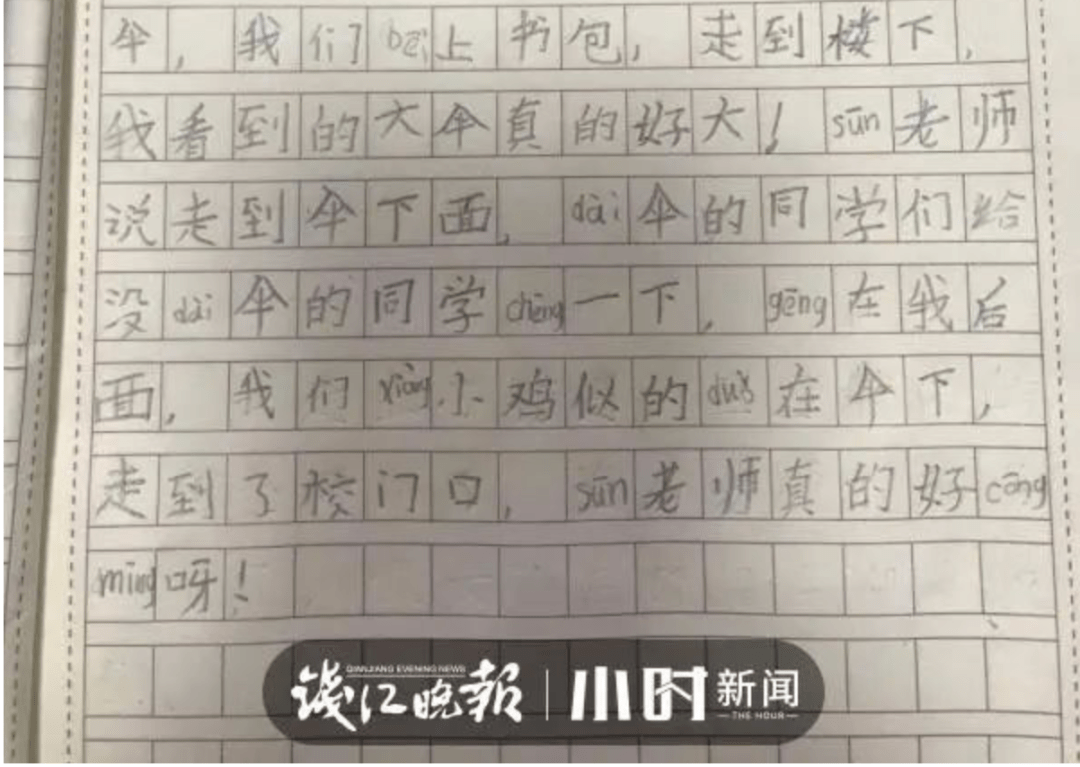 伞，我们bēi上书包，走到楼下，
我看到的大伞真的好大！sūn老师
说走到伞下面，dài伞的同学们给
没dài伞的同学chēng一下，gēng在我后
面，我们xiàng小鸡似的duǒ在伞下，
走到了校门口，sūn老师真的好cōng
mīng呀！
钱江晚报
QIANJIANG EVENING NEWS
小时新闻
THE HOUR